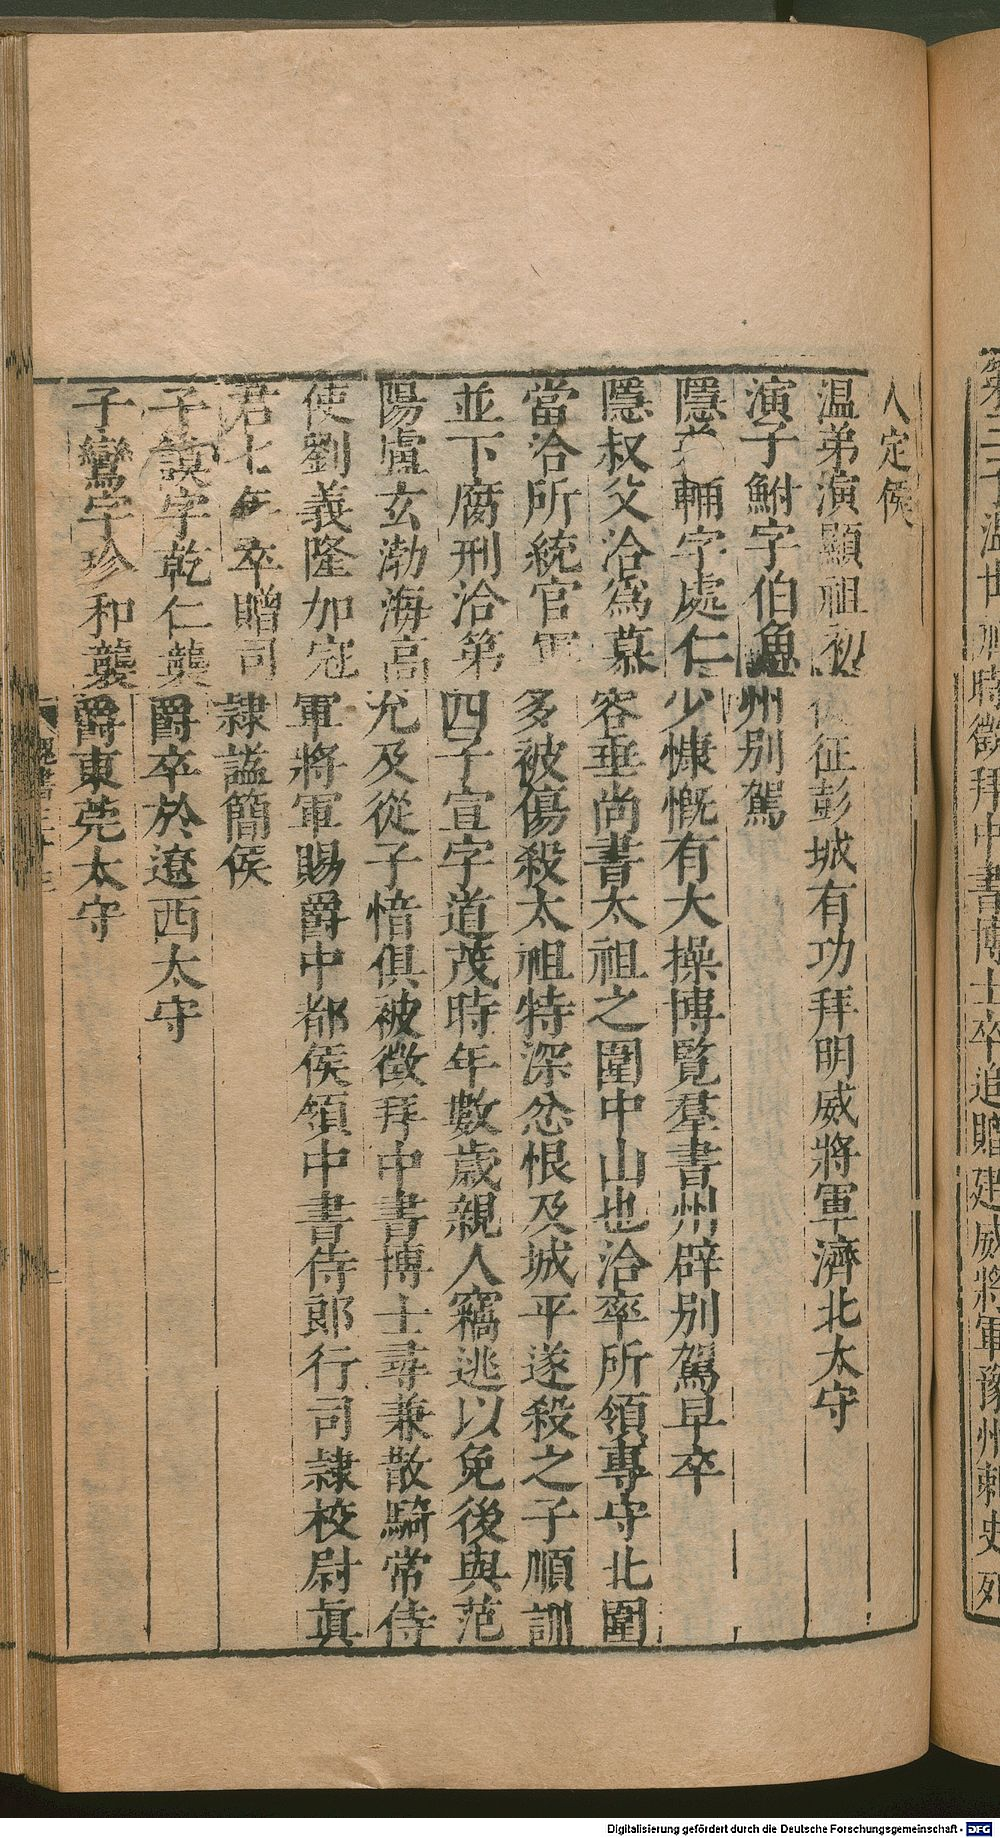 寧三子溫世祖時徵拜中書博士卒追贈建威將軍豫州刺史列
人定侯
溫弟演顯祖初從征彭城有功拜明威將軍濟北太守
演子鮒字伯魚州別駕
隱弟輔字處仁少慷慨有大操博覽羣書州辟別駕早卒
隱叔父洽爲慕容垂尚書太祖之圍中山也洽率所領專守北圍
當洽所統官軍多被傷殺太祖特深忿恨及城平遂殺之子順訓
並下腐刑洽第四子宣字道茂時年數歲親人竊逃以免後與范
陽盧玄渤海高允及從子愔俱被徵拜中書博士尋兼散騎常侍
使劉義隆加冠軍將軍賜爵中都侯領中書侍郎行司隸校尉眞
君七年卒贈司隸諡簡侯
子謨字乾仁襲爵卒於遼西太守
子鸞字珍和襲爵東莞太守
魏書三十三
Digitalisierung gefördert durch die Deutsche Forschungsgemeinschaft - DFG